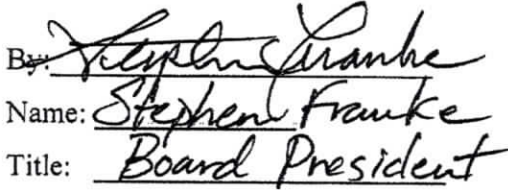 By: Stephen Franke
Name: Stephen Franke
Title: Board President